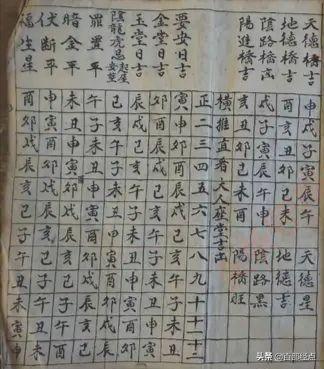 天德橋吉 申戌子寅辰午 天德吉
地德橋吉 酉亥丑卯巳未 地德吉
陰路橋凶 戌子寅辰午申 陰路黑
陽逢橋吉 亥丑卯巳未酉 陽橋旺
橫推直看夫人座堂吉凶
正二三四五六七八九十十一十二
要安日吉 寅申卯酉辰戌巳亥午子未丑
金堂日吉
玉堂日吉 辰戌巳亥午子未丑申寅酉卯
陰龍虎忌 巳亥午子未丑申寅酉卯戌辰
羅置平 午子未丑申寅酉卯戌辰亥巳
暗金平 未丑申寅酉卯戌辰亥巳子午
伏斷平
福生星 酉卯戌辰亥巳子午丑未寅申
头条 @百部怪点